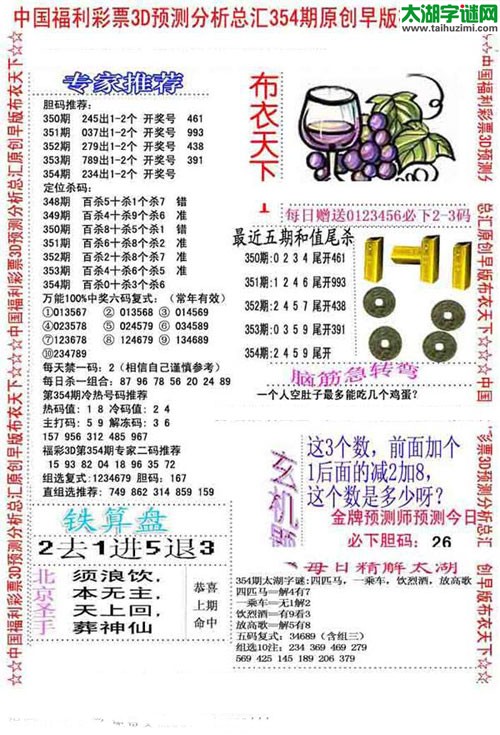 太湖字谜网
www.taihuzimi.com
中国福利彩票3D预测分析总汇354期原创早版
专家推荐
胆码推荐:
350期 245出1-2个 开奖号 461
351期 037出1-2个 开奖号 993
352期 279出1-2个 开奖号 438
353期 789出1-2个 开奖号 391
354期 234出1-2个 开奖号
定位杀码:
348期 百杀5十杀1个杀7 错
349期 百杀4十杀9个杀6 准
350期 百杀9十杀5个杀6 准
351期 百杀3十杀1个杀7 准
352期 百杀8十杀6个杀5 准
353期 百杀2十杀6个杀5 准
354期 百杀0十杀3个杀6
万能100%中奖六码复式: (常年有效)
①013567 ②013568 ③014569
④023578 ⑤024579 ⑥034589
⑦123678 ⑧124679 ⑨134689
⑩234789
每天禁一码: 2 (相信自己谨慎参考)
每日杀一组合: 87 96 78 56 20 24 89
第354期冷热号码推荐
热码值: 1 8 冷码值: 2 4
主打码: 5 9 解冻码: 3 6
157 956 312 485 967
福彩3D第354期专家二码推荐
15 93 82 04 18 96 35 72
组选复式:1234679 胆码: 167
直组选推荐: 749 862 314 859 159
铁算盘
2去1进5退3
北京圣手
须浪饮,
本无主,
天上回,
葬神仙
恭喜
上期
命中
布衣天下
每日赠送0123456必下2-3码
最近五期和值尾杀
350期:0 2 3 4 尾开461
351期:1 2 4 6 尾开993
352期:2 4 5 7 尾开438
353期:0 3 5 9 尾开391
354期:2 4 5 9 尾开
脑筋急转弯
一个人空肚子最多能吃几个鸡蛋?
玄机
这3个数, 前面加个
1后面的减2加8,
这个数是多少呀?
金牌预测师预测今日
必下胆码: 26
每日精解太湖
354期太湖字谜:四匹马, 一乘车, 饮烈酒, 放高歌
四匹马=解4有7
一乘车=无1解2
饮烈酒=有9看3
放高歌=解5有8
五码复式: 34689 (含组三)
组选10注: 234 369 469 279
569 425 145 189 206 379
☆☆中国福利彩票3D预测分析总汇原创早版布衣天下☆☆
中国福利彩票3D预测分
总汇原创早版布衣天下☆☆
☆☆中国
彩票3D预测分析总汇
创早版布衣天下☆☆